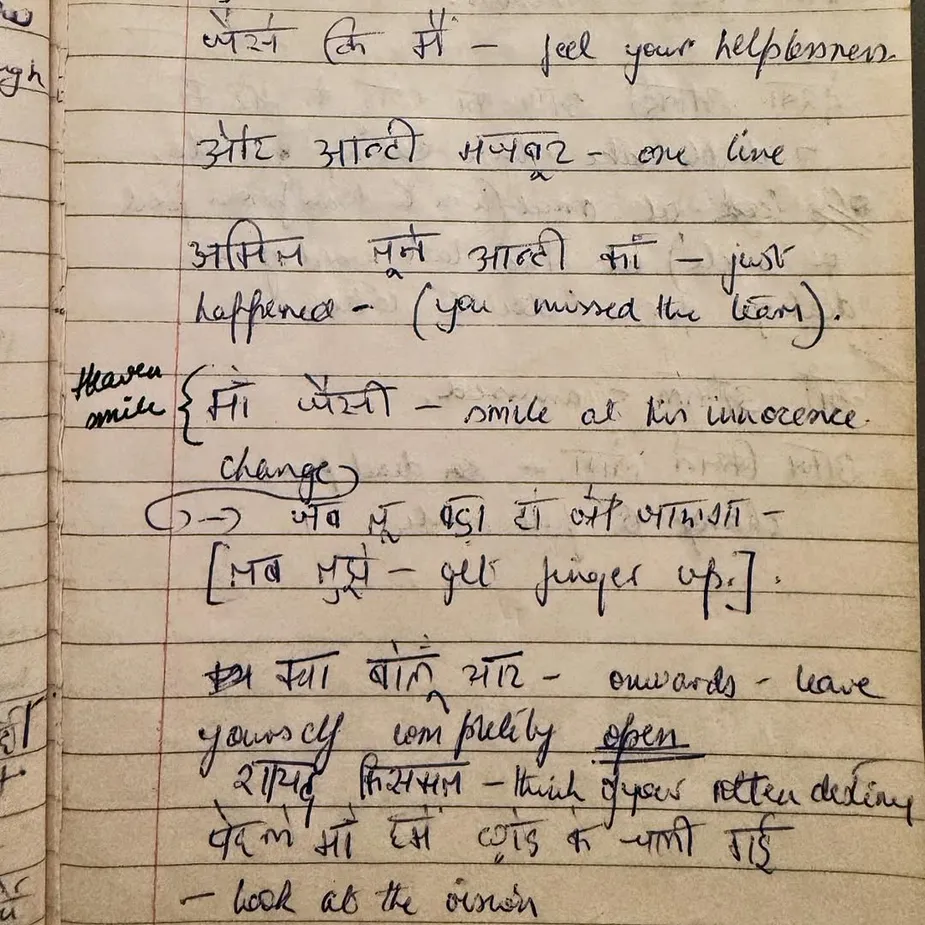 जैसे कि मैं - feel your helplessness.
और आन्टी मजबूर - one line
अमित तूने आन्टी माँ - just
happened - (you missed the team).
Heaven
smile
माँ जैसी - smile at his innocence.
change
जब तू बड़ा हो जाएगा -
[तब तुझे - get finger up.].
क्या बोलूं यार - onwards - leave
yourself completely open
शायद किसमत - think of your rotten destiny
पेहले माँ हमें छोड़ के चली गई
- Look at the vision